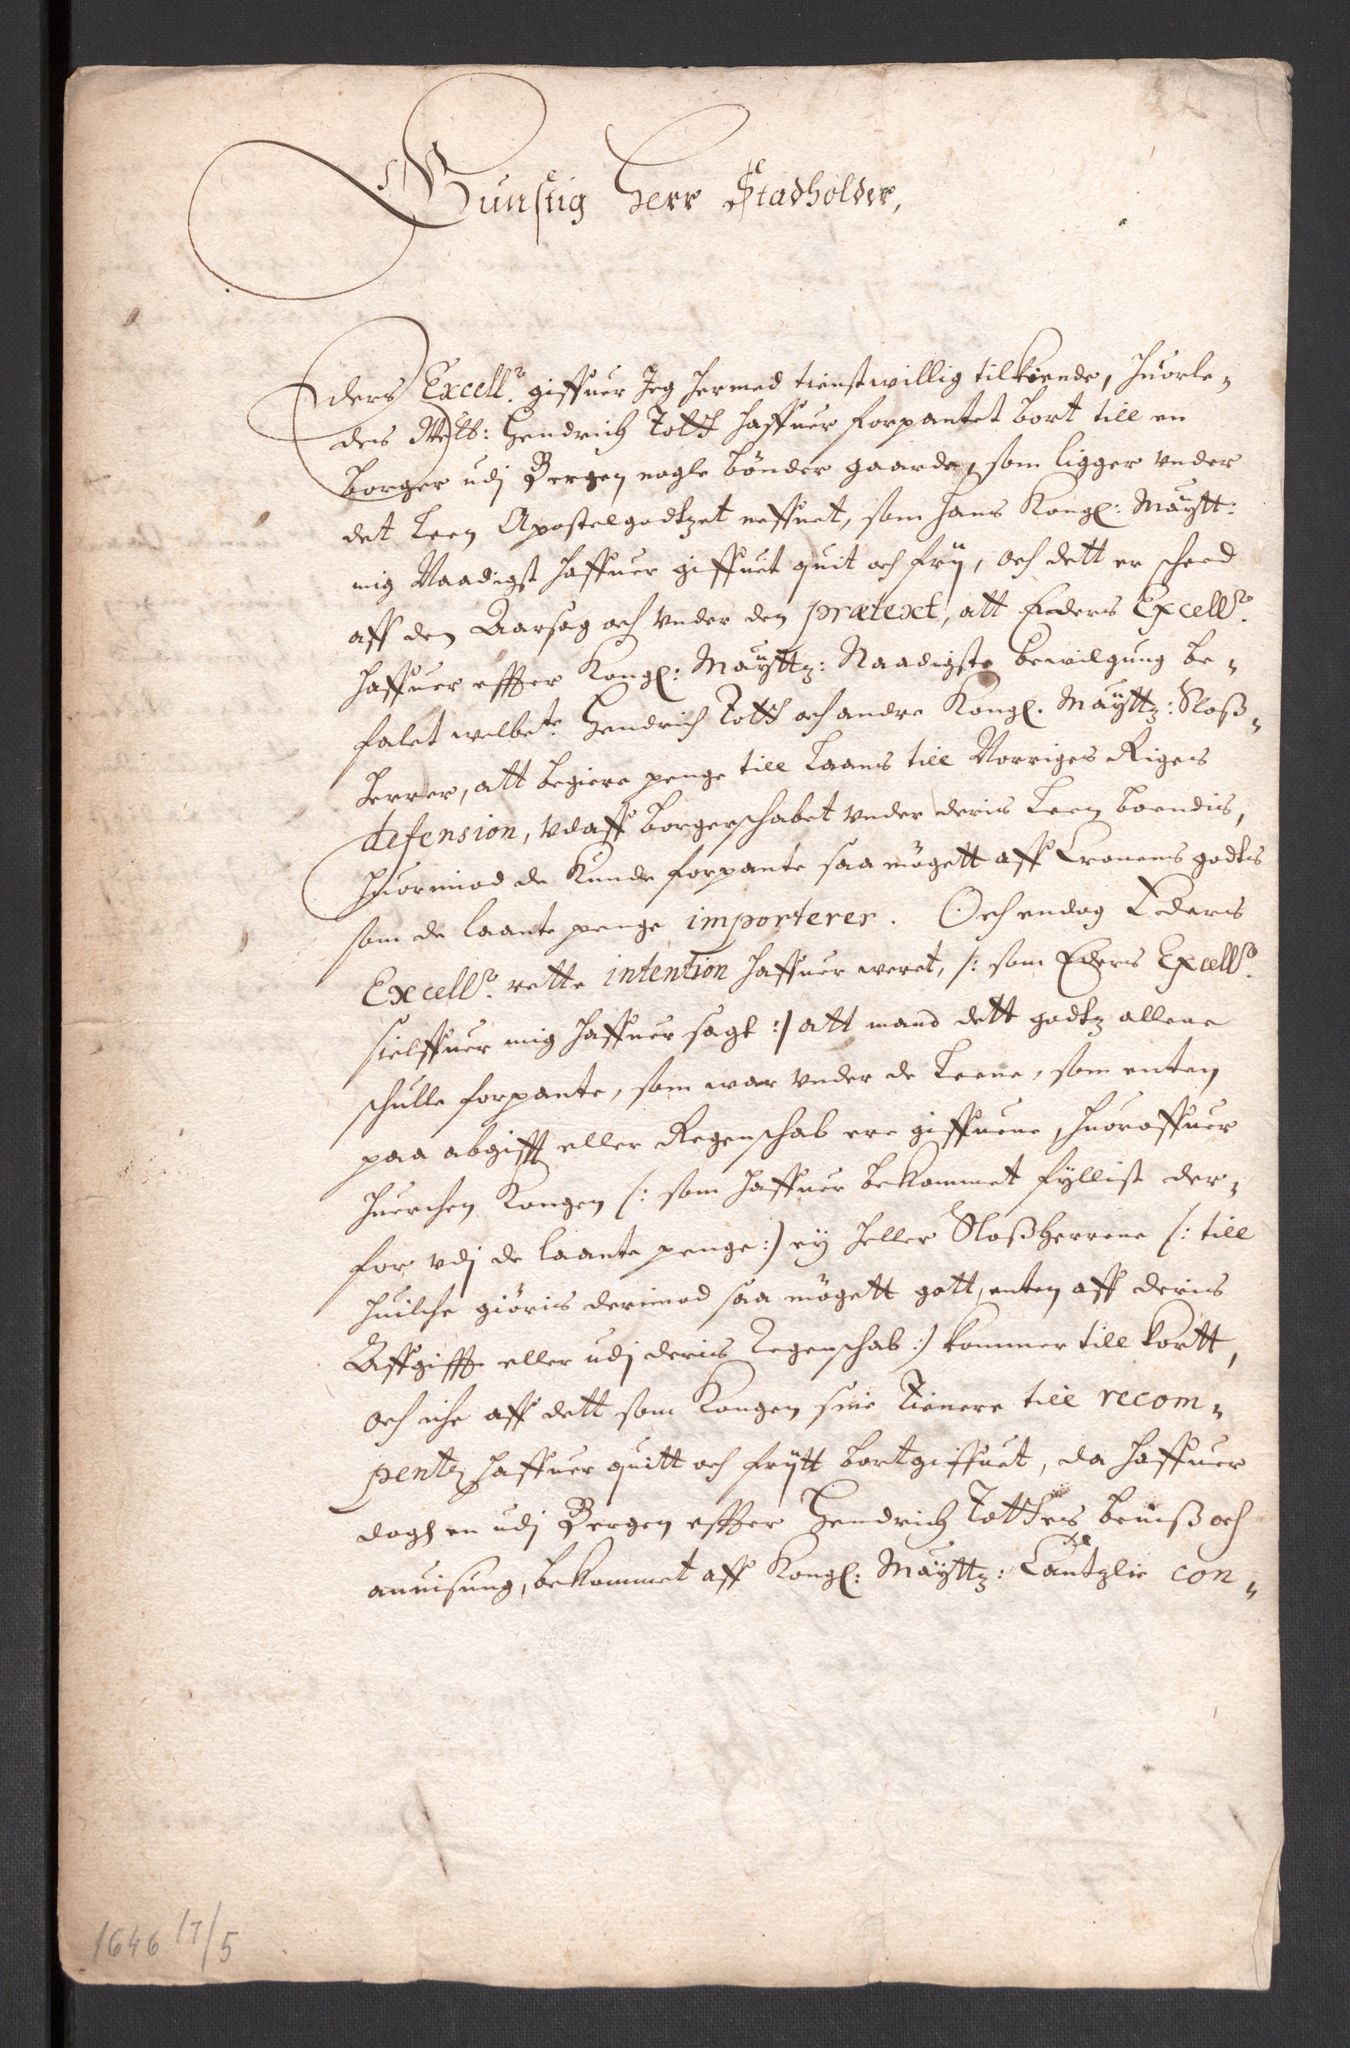 Gunstig Herr Stadholder,
Eders Excell: giffuer Jeg hermed tienstwillig tilkiende, huorle-
des Welb: Hendrich Tott haffuer forpantet bort till en
borger udj Bergen nogle bönder gaarde, som ligger vnder
det Leen Apostelgodtzet neffnet, som hans Kongl: Maÿtt:
mig Naadigst haffuer giffuet quit och frÿ, och dett er scheed
aff den Aarsag och vnder den prætext, att Eders Excell:
haffuer effter Kongl: Maÿttz: Naadigste bewilgung be-
falet welbete: Hendrich Tott och andre Kongl. Maÿttz: Sloß-
herrer, att begiere penge till Laans till Norriges Rigens
defension, vdaff borgerschabet vnder deris Leen boendis,
huorimod de kunde forpante saa mögett aff Cronens godtz
som de laante penge importerer. Och endog Eders
Excell: rette intention haffuer weret, /: som Eders Excell:
sielffuer mig haffuer sagt :/ att mand dett godtz allene
schulle forpante, som war vnder de Leene, som enten
paa abgifft eller Regenschab ere giffuene, huoroffuer
huerchen Kongen /: som haffuer bekommet fÿllist der-
for vdj de laante penge :/ eÿ heller Sloßherrene /: till
huilche giöris derimod saa mögett gott, enten aff deris
Affgifft eller udj deris Regenschab :/ kommer till kortt,
och iche aff dett som Kongen sine Tienere till recom-
pentz haffuer quitt och frÿtt bortgiffuet, da haffuer
dogh en udj Bergen effter Hendrich Tottes beuiß och
anuisung, bekommet aff Kongl: Maÿttz: Cantzlie con-
1646 17/5